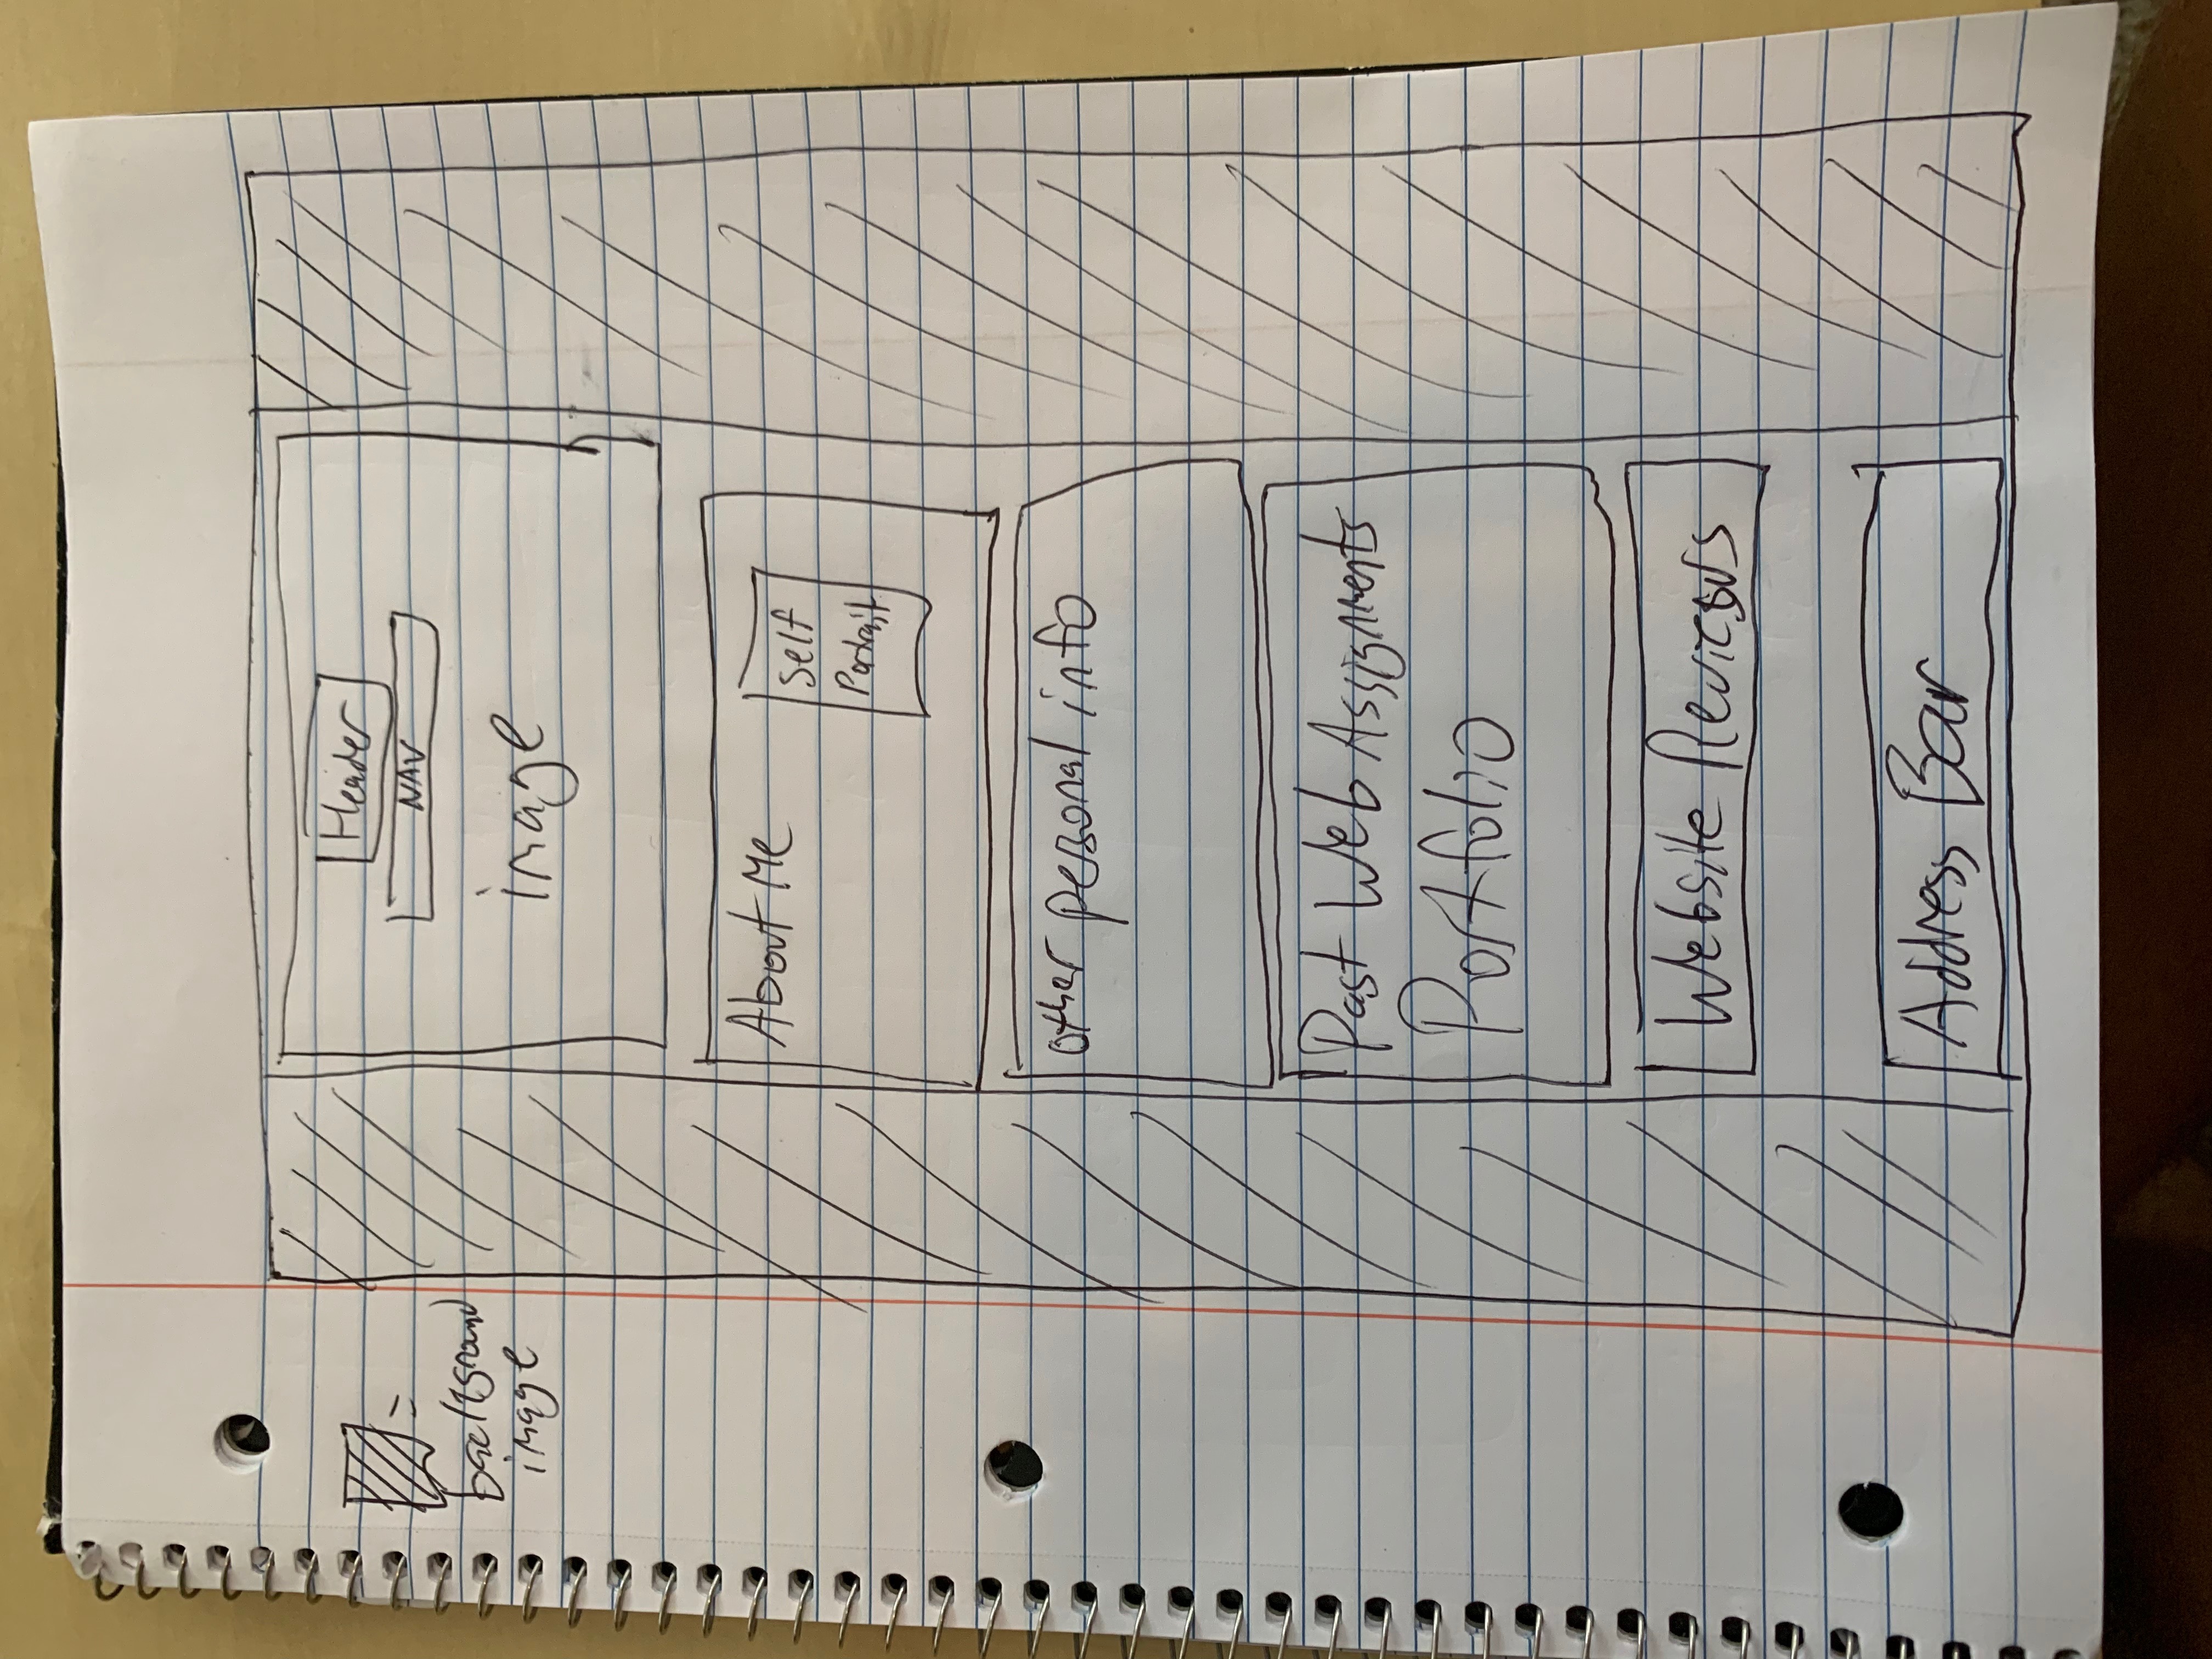 Header
NAV
image
=
background
image
About Me
Self
Portrait
other personal info
Past Web Assignments
Portfolio
Website Reviews
Address Bar